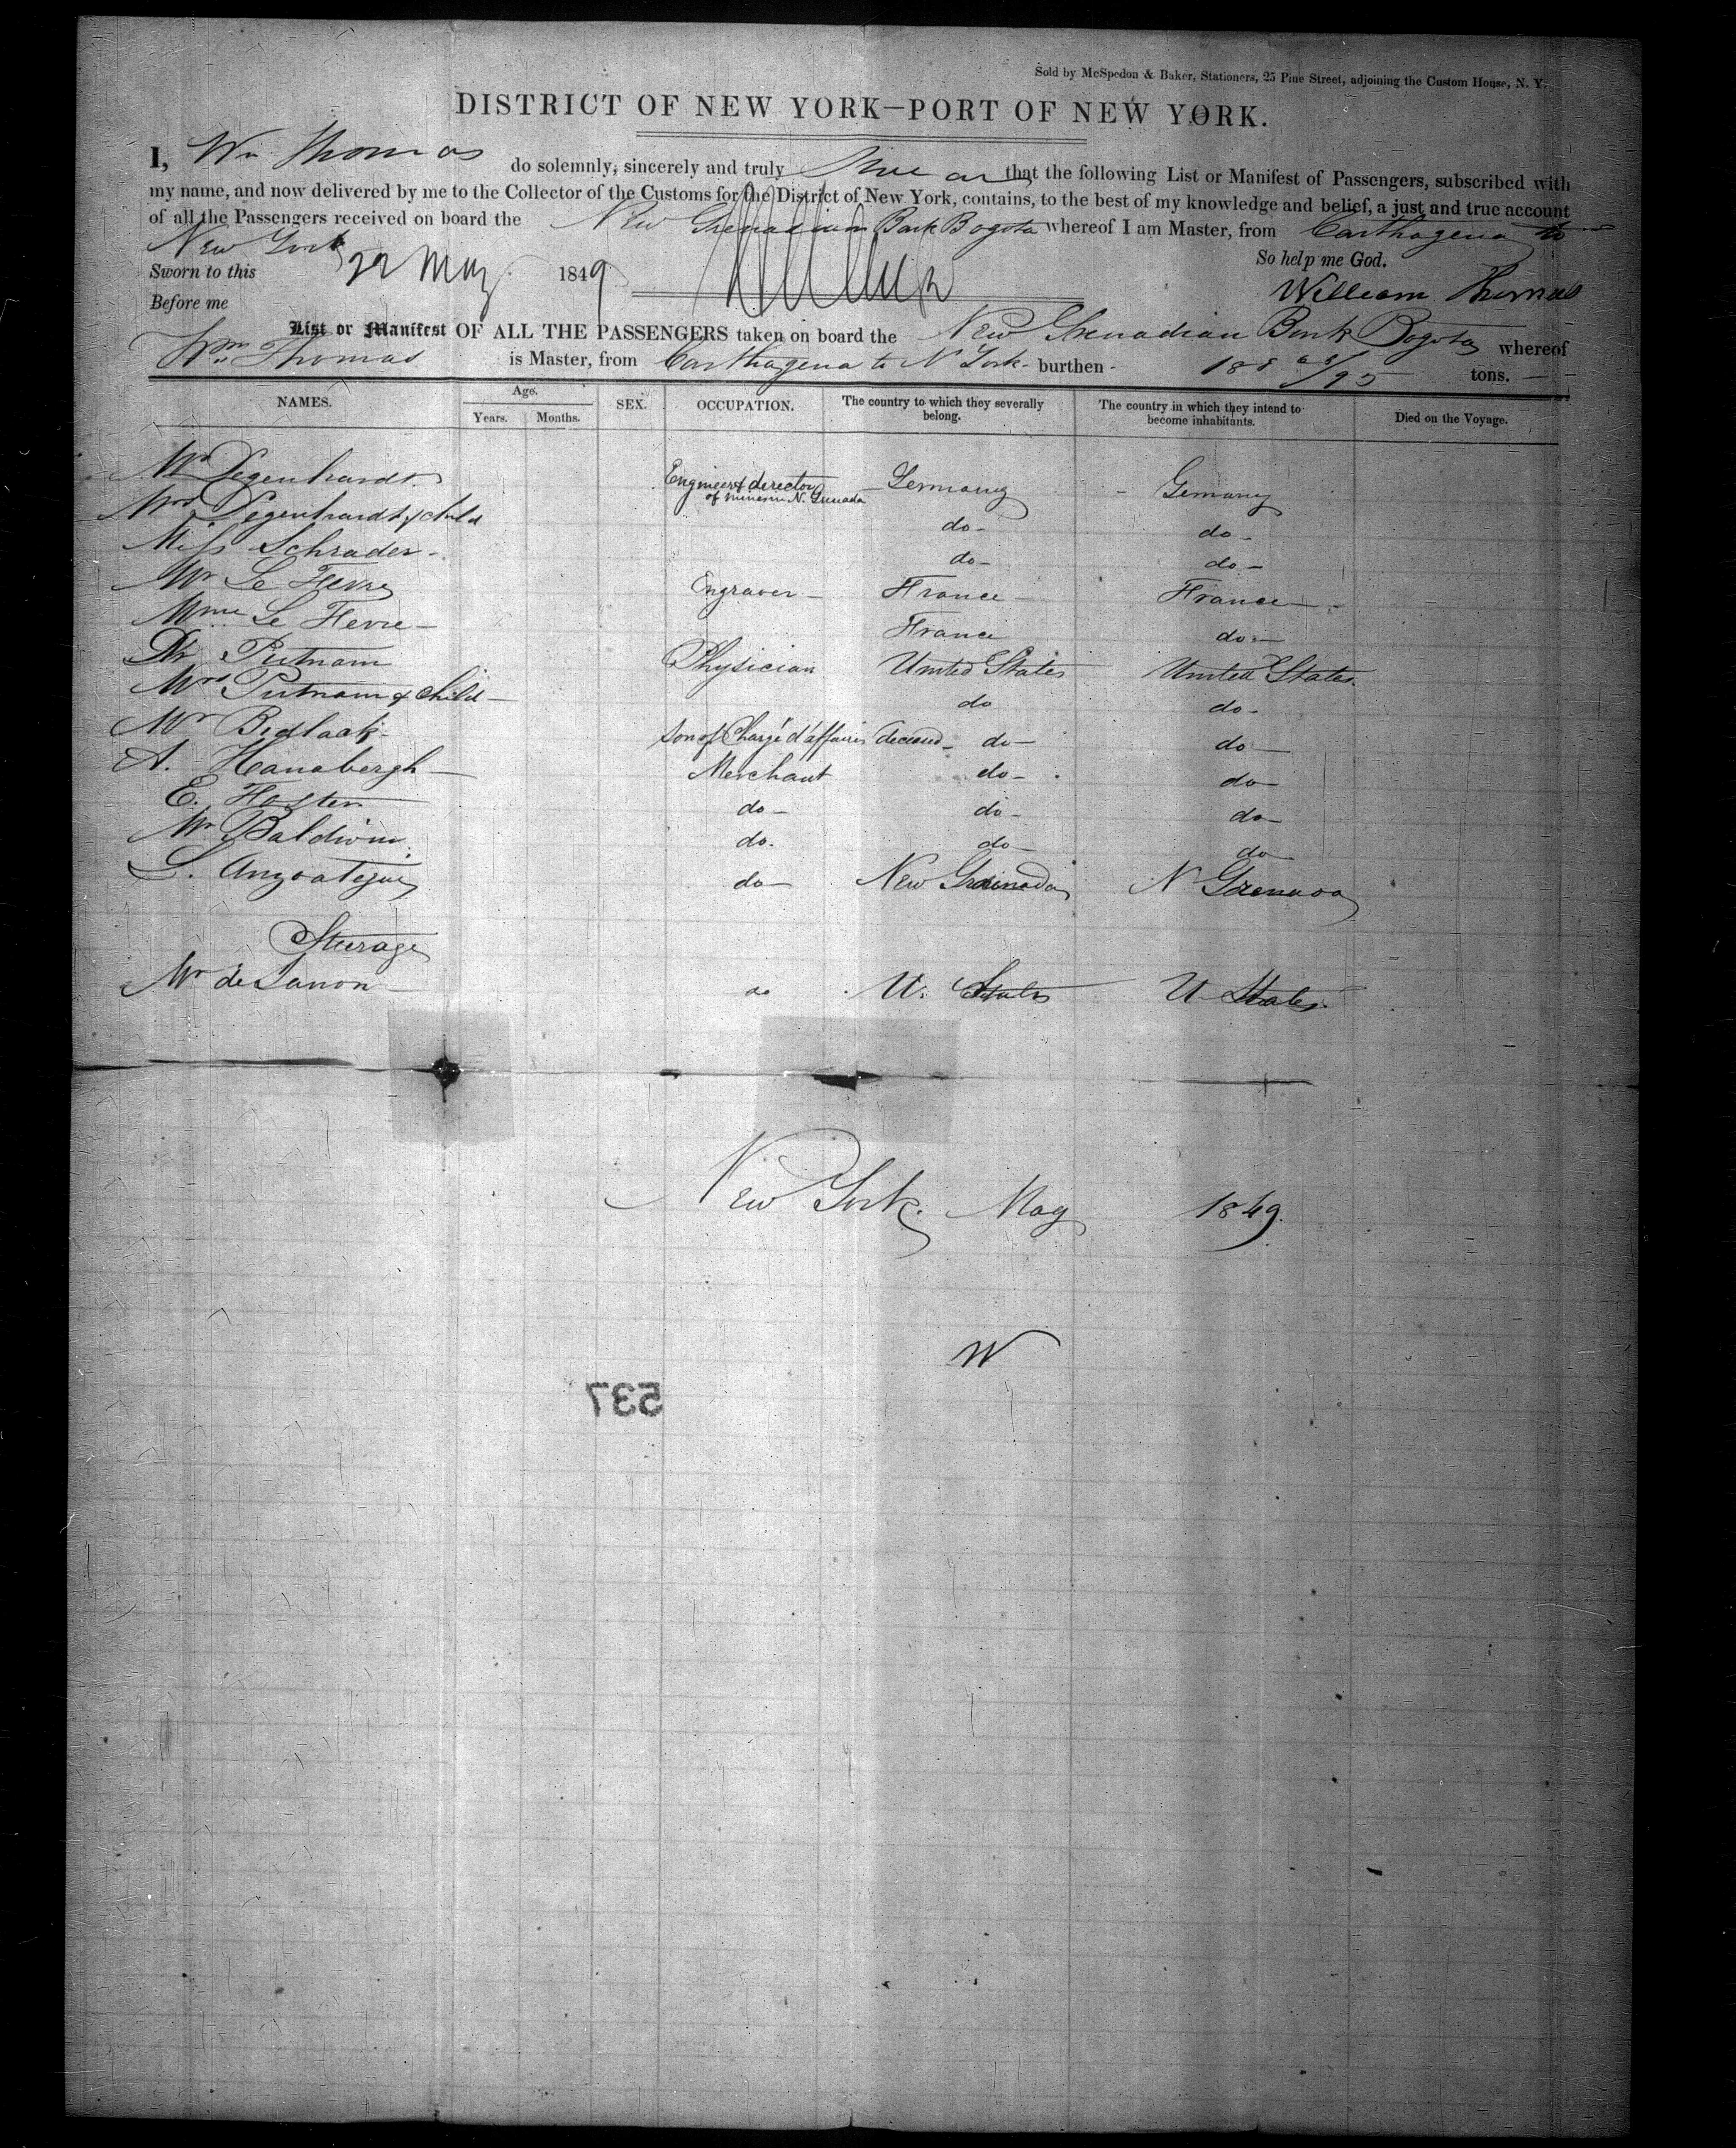 Sold by McSpedon & Baker, Stationers, 25 Pine Street, adjoining the Custom House, N. Y.
DISTRICT OF NEW YORK—PORT OF NEW YORK.
I, Wm Thomas do solemnly, sincerely and truly Swear that the following List or Manifest of Passengers, subscribed with
my name, and now delivered by me to the Collector of the Customs for the District of New York, contains, to the best of my knowledge and belief, a just and true account
of all the Passengers received on board the New Grenadian Bark Bogota whereof I am Master, from Carthagena to
New York
So help me God.
Sworn to this 22 May 1849
William Thomas
Before me
List or Manifest OF ALL THE PASSENGERS taken on board the New Grenadian Bark Bogota whereof
Wm Thomas is Master, from Carthagena to N York burthen 188 /95 tons.
NAMES. Age. Years. Months. SEX. OCCUPATION. The country to which they severally belong. The country in which they intend to become inhabitants. Died on the Voyage.
Mr Degenhardt Engineer & director of mines in N. Grenada Germany Germany
Mrs Degenhardt & child do do
Miss Schrader do do
Mr Le Fevre Engraver France France
Mme Le Fevre France do
Dr Putnam Physician United States United States.
Mrs Putnam & Child do do
Mr Bidlack Son of Chargé d'affaires deceased do do
A. Hanabergh Merchant do do
E. Hosten do do do
Mr Baldwin do. do do
L. Anzoategui do New Grenada N Grenada
Steerage
Mr de Lanon do U. States U States
New York May 1849.
W
537